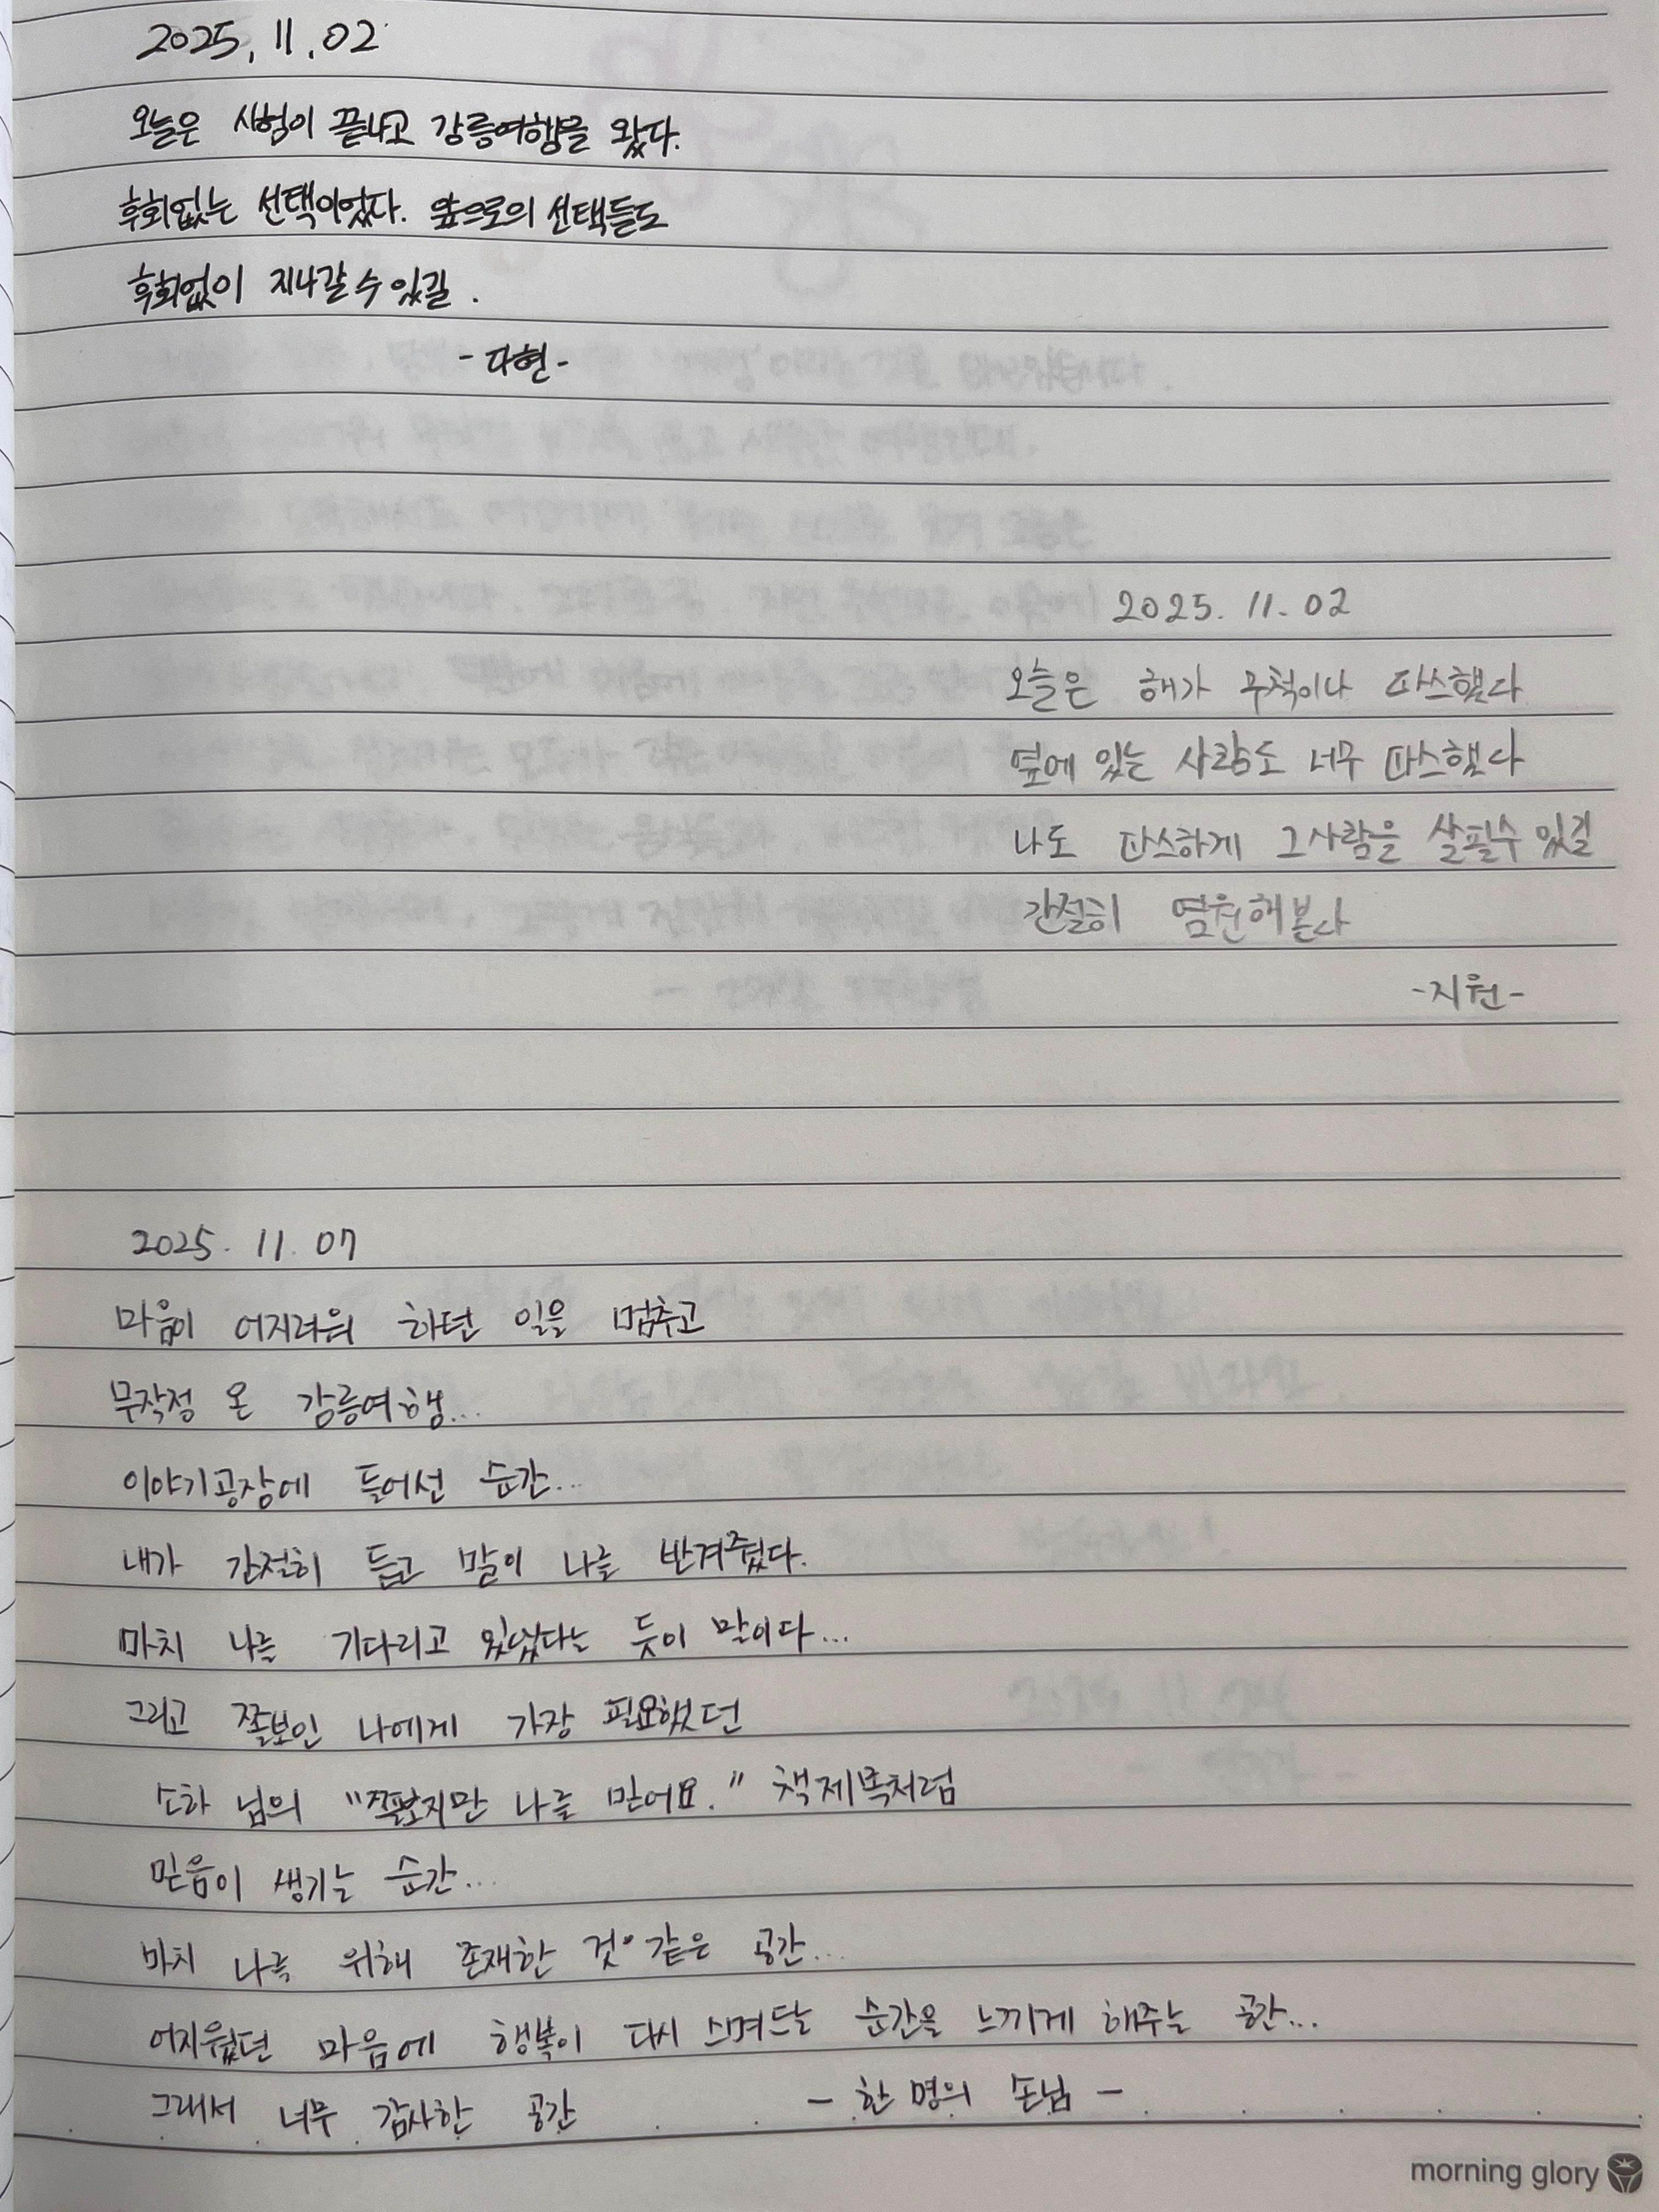 2025.11.02
오늘은 시험이 끝나고 강릉여행을 왔다.
후회없는 선택이었다. 앞으로의 선택들도
후회없이 지나갈 수 있길.
-다현-
2025.11.02
오늘은 해가 무척이나 따스했다
옆에 있는 사람도 너무 따스했다
나도 따스하게 그사람을 살필수 있길
간절히 염원해본다
-지원-
2025.11.07
마음이 어지러워 하던 일을 멈추고
무작정 온 강릉여행...
이야기공장에 들어선 순간...
내가 간절히 듣고 말이 나를 반겨줬다.
마치 나를 기다리고 있었다는 듯이 말이다...
그리고 쫄보인 나에게 가장 필요했던
소하 님의 "쫄보지만 나를 믿어요." 책제목처럼
믿음이 생기는 순간...
마치 나를 위해 존재한 것 같은 공간...
어지웠던 마음에 행복이 다시 스며드는 순간을 느끼게 해주는 공간...
그래서 너무 감사한 공간 - 한 명의 손님 -
morning glory